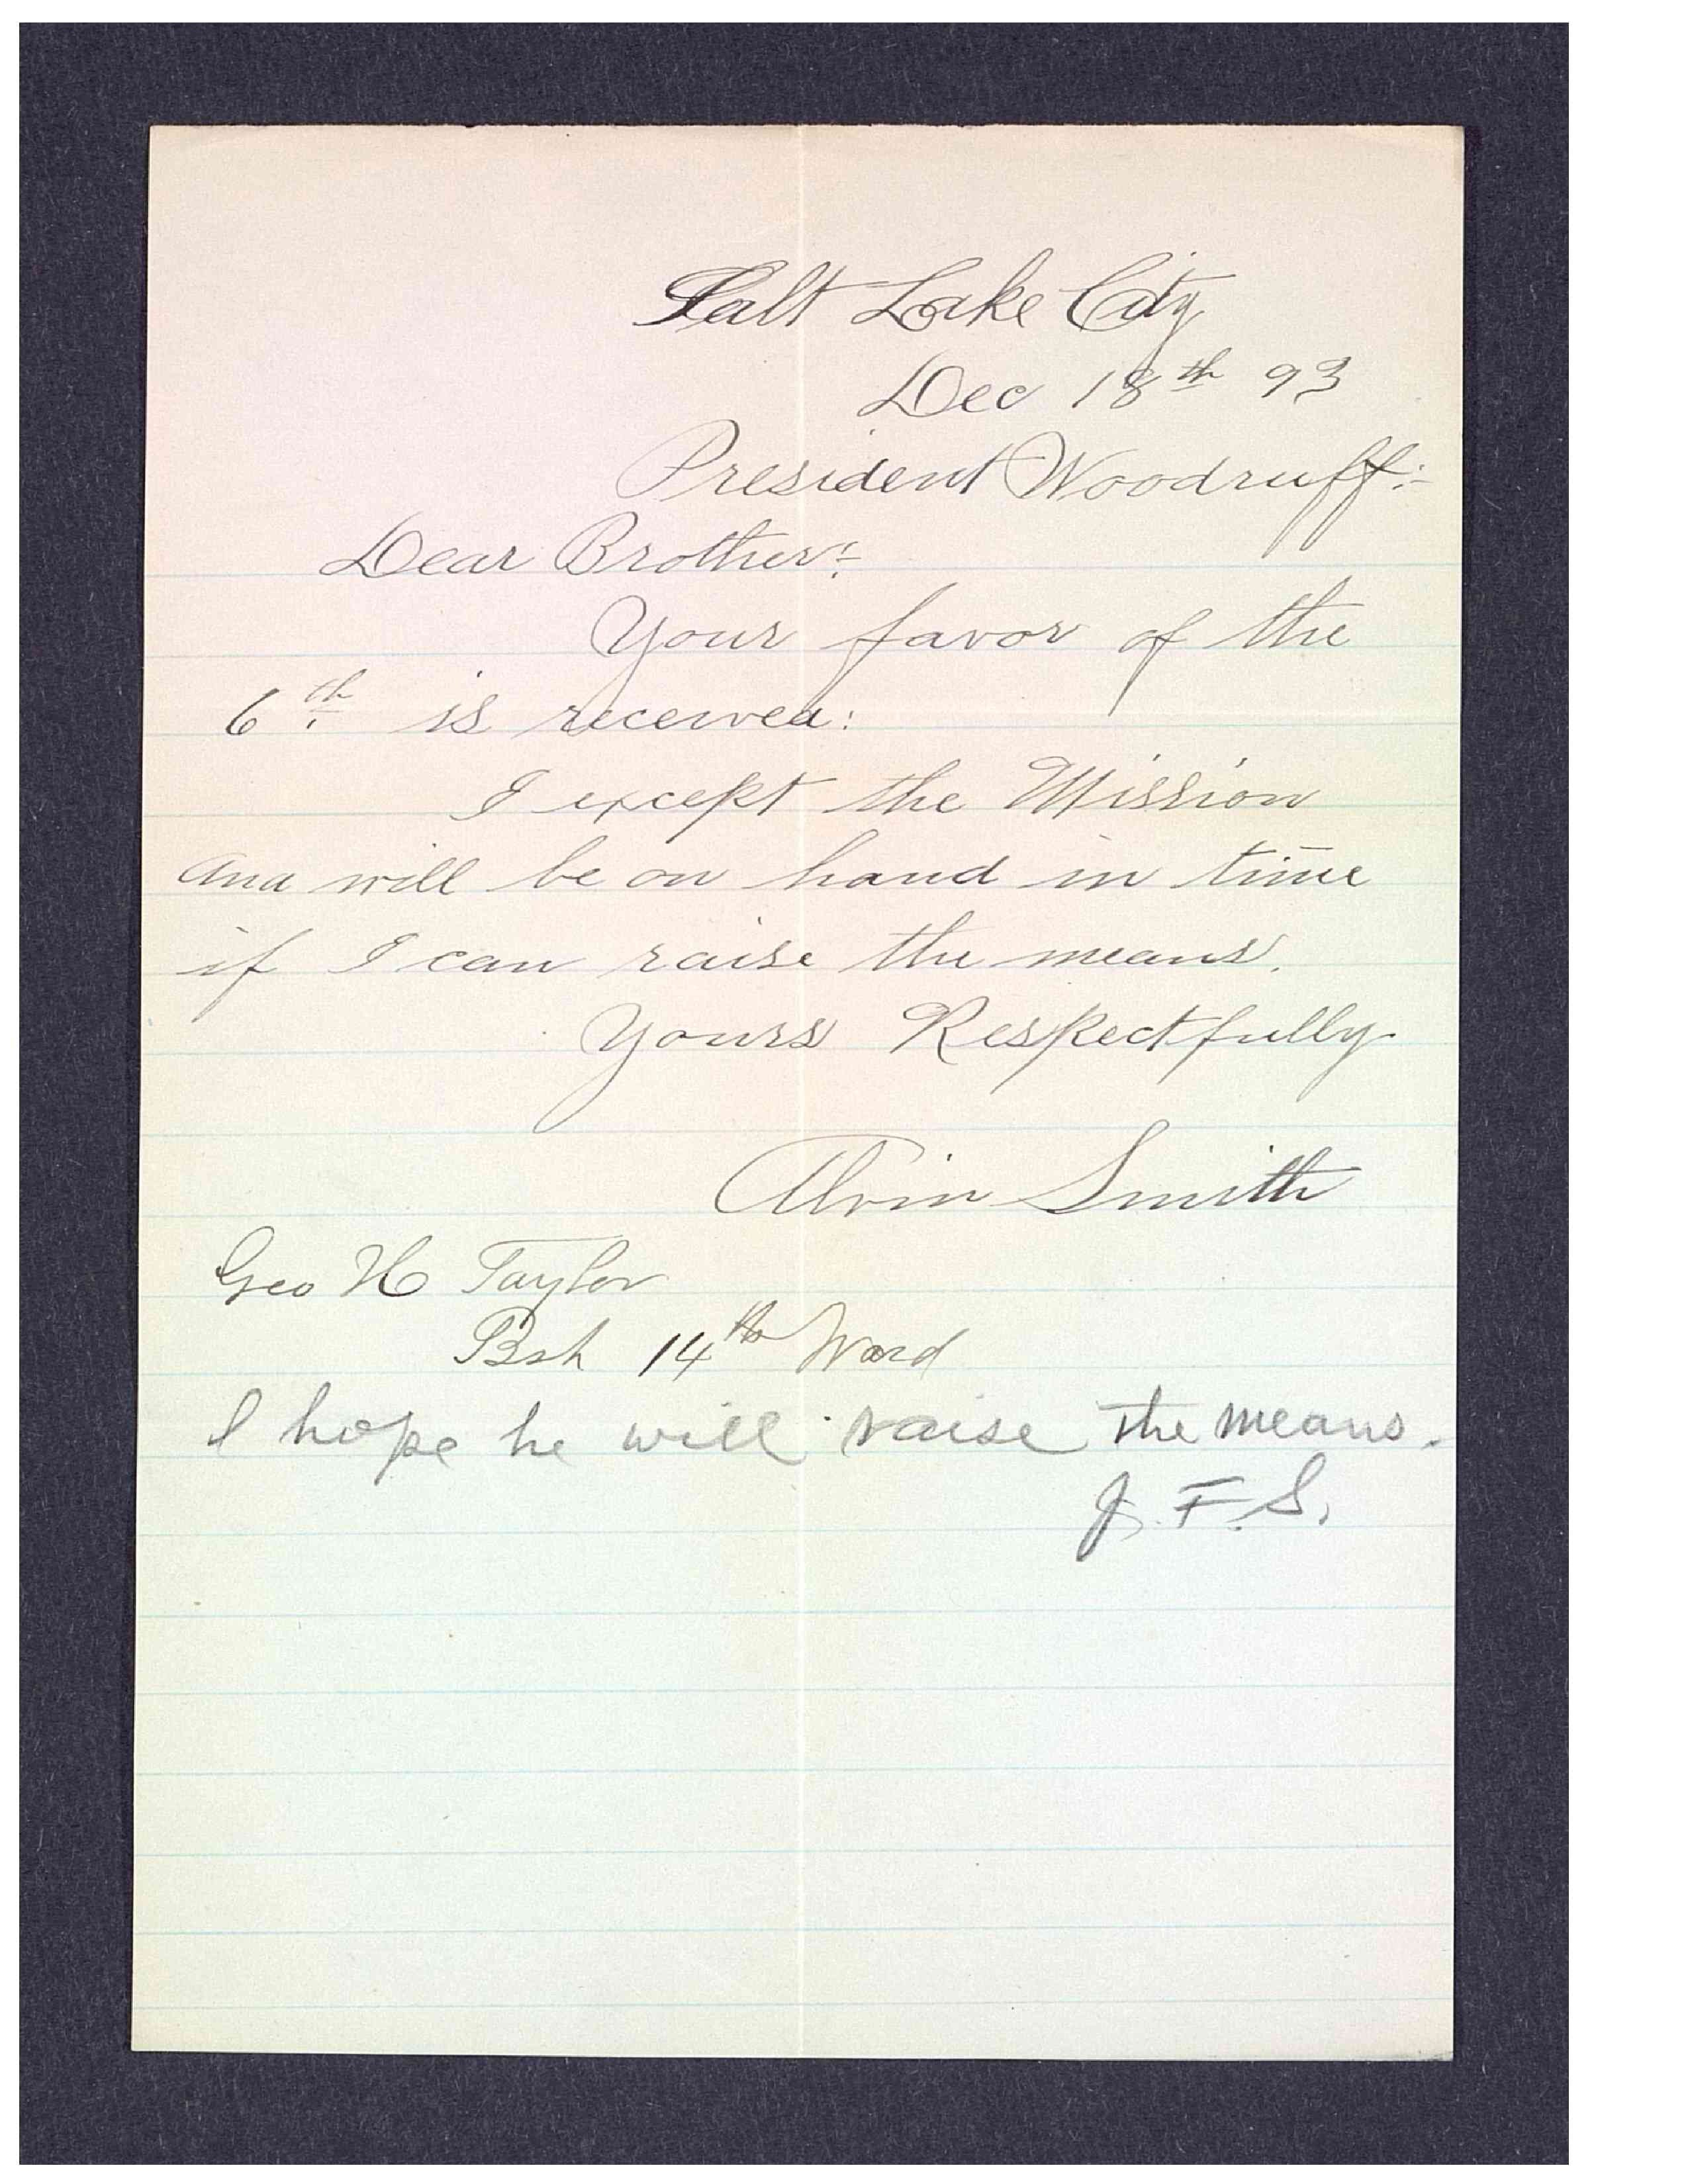 Salt Lake City
Dec 18th 93
President Woodruff:-
Dear Brother:-
Your favor of the
6th is received:
I except the Mission
and will be on hand in time
if I can raise the means.
Yours Respectfully
Alvin Smith
Geo H Taylor
Bsh 14th Ward
I hope he will raise the means.
J. F. S.